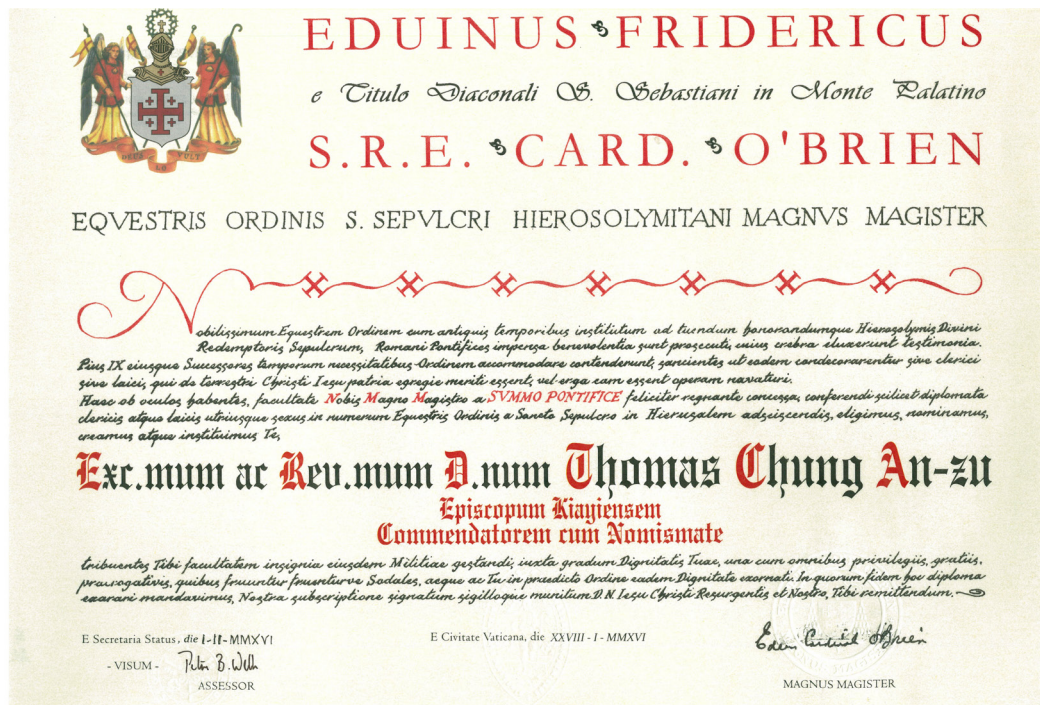 EDUINUS FRIDERICUS
e Titulo Diaconali S. Sebastiani in Monte Palatino
S.R.E. CARD. O'BRIEN
DEUS LO VULT
EQVESTRIS ORDINIS S. SEPVLCRI HIEROSOLYMITANI MAGNVS MAGISTER
Nobilissimum Equestrem Ordinem eum antiquis temporibus institutum ad tuendum honorandumque Hierosolymis Divini
Redemptoris Sepulcrum, Romani Pontifices impensa benevolentia sunt prosecuti, cuius crebra eluxerunt testimonia.
Pius IX eiusque Successores temporum necessitatibus Ordinem accommodare contenderunt, sancientes ut eodem condecorarentur sive clerici
sive laici, qui de terrestri Christi Iesu patria egregie meriti essent, vel erga eam essent operam navaturi.
Haec ob oculos habentes, facultate Nobis Magno Magistro a SVMMO PONTIFICE feliciter regnante concessa, conferendi scilicet diplomata
clericis atque laicis utriusque sexus in numerum Equestris Ordinis a Sancto Sepulcro in Hierusalem adsciscendis, eligimus, nominamus,
creamus atque instituimus Te,
Exc.mum ac Rev.mum D.num Thomas Chung An-zu
Episcopum Kiayiensem
Commendatorem cum Nomismate
tribuentes Tibi facultatem insignia eiusdem Militiae gestandi, iuxta gradum Dignitatis Tuae, una cum omnibus privilegiis, gratiis,
praerogativis, quibus fruuntur fruenturve Sodales, aeque ac Tu in praedicto Ordine eadem Dignitate exornati. In quorum fidem hoc diploma
exarari mandavimus, Nostra subscriptione signatum sigilloque munitum D.N. Iesu Christi Resurgentis et Nostro, Tibi remittendum.
E Secretaria Status, die 1-II-MMXVI
E Civitate Vaticana, die XXVIII - I - MMXVI
Edwin Cardinal O'Brien
- VISUM - Peter B. Wells
ASSESSOR
MAGNUS MAGISTER